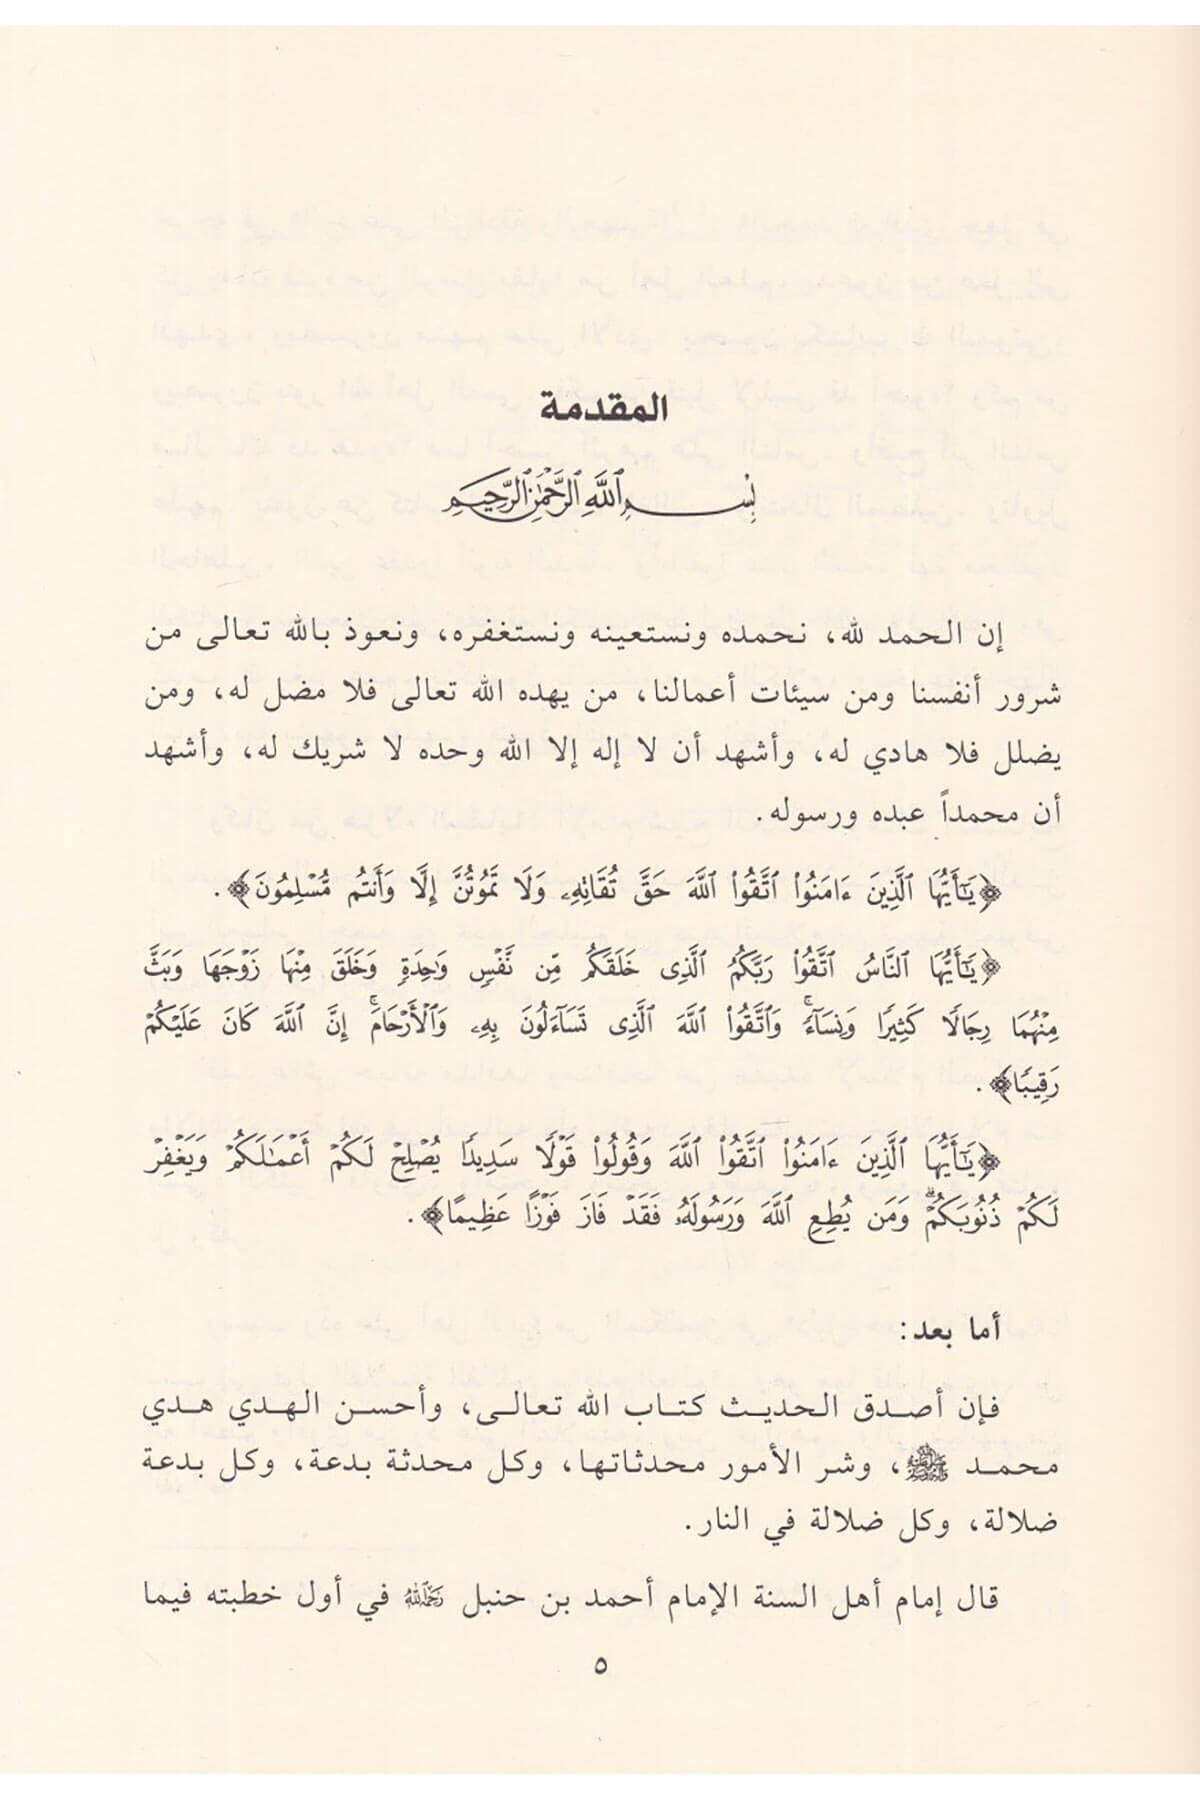 المقدمة
بسم الله الرحمن الرحيم
إن الحمد لله، نحمده ونستعينه ونستغفره، ونعوذ بالله تعالى من
شرور أنفسنا ومن سيئات أعمالنا، من يهده الله تعالى فلا مضل له، ومن
يضلل فلا هادي له، وأشهد أن لا إله إلا الله وحده لا شريك له، وأشهد
أن محمداً عبده ورسوله.
﴿يَٰٓأَيُّهَا ٱلَّذِينَ ءَامَنُوا۟ ٱتَّقُوا۟ ٱللَّهَ حَقَّ تُقَاتِهِۦ وَلَا تَمُوتُنَّ إِلَّا وَأَنتُم مُّسْلِمُونَ﴾.
﴿يَٰٓأَيُّهَا ٱلنَّاسُ ٱتَّقُوا۟ رَبَّكُمُ ٱلَّذِى خَلَقَكُم مِّن نَّفْسٍ وَٰحِدَةٍ وَخَلَقَ مِنْهَا زَوْجَهَا وَبَثَّ
مِنْهُمَا رِجَالًا كَثِيرًا وَنِسَآءً ۚ وَٱتَّقُوا۟ ٱللَّهَ ٱلَّذِى تَسَآءَلُونَ بِهِۦ وَٱلْأَرْحَامَ ۚ إِنَّ ٱللَّهَ كَانَ عَلَيْكُمْ
رَقِيبًا﴾.
﴿يَٰٓأَيُّهَا ٱلَّذِينَ ءَامَنُوا۟ ٱتَّقُوا۟ ٱللَّهَ وَقُولُوا۟ قَوْلًا سَدِيدًا يُصْلِحْ لَكُمْ أَعْمَٰلَكُمْ وَيَغْفِرْ
لَكُمْ ذُنُوبَكُمْ ۗ وَمَن يُطِعِ ٱللَّهَ وَرَسُولَهُۥ فَقَدْ فَازَ فَوْزًا عَظِيمًا﴾.
أما بعد:
فإن أصدق الحديث كتاب الله تعالى، وأحسن الهدي هدي
محمد ﷺ، وشر الأمور محدثاتها، وكل محدثة بدعة، وكل بدعة
ضلالة، وكل ضلالة في النار.
قال إمام أهل السنة الإمام أحمد بن حنبل رحمه الله في أول خطبته فيما
٥